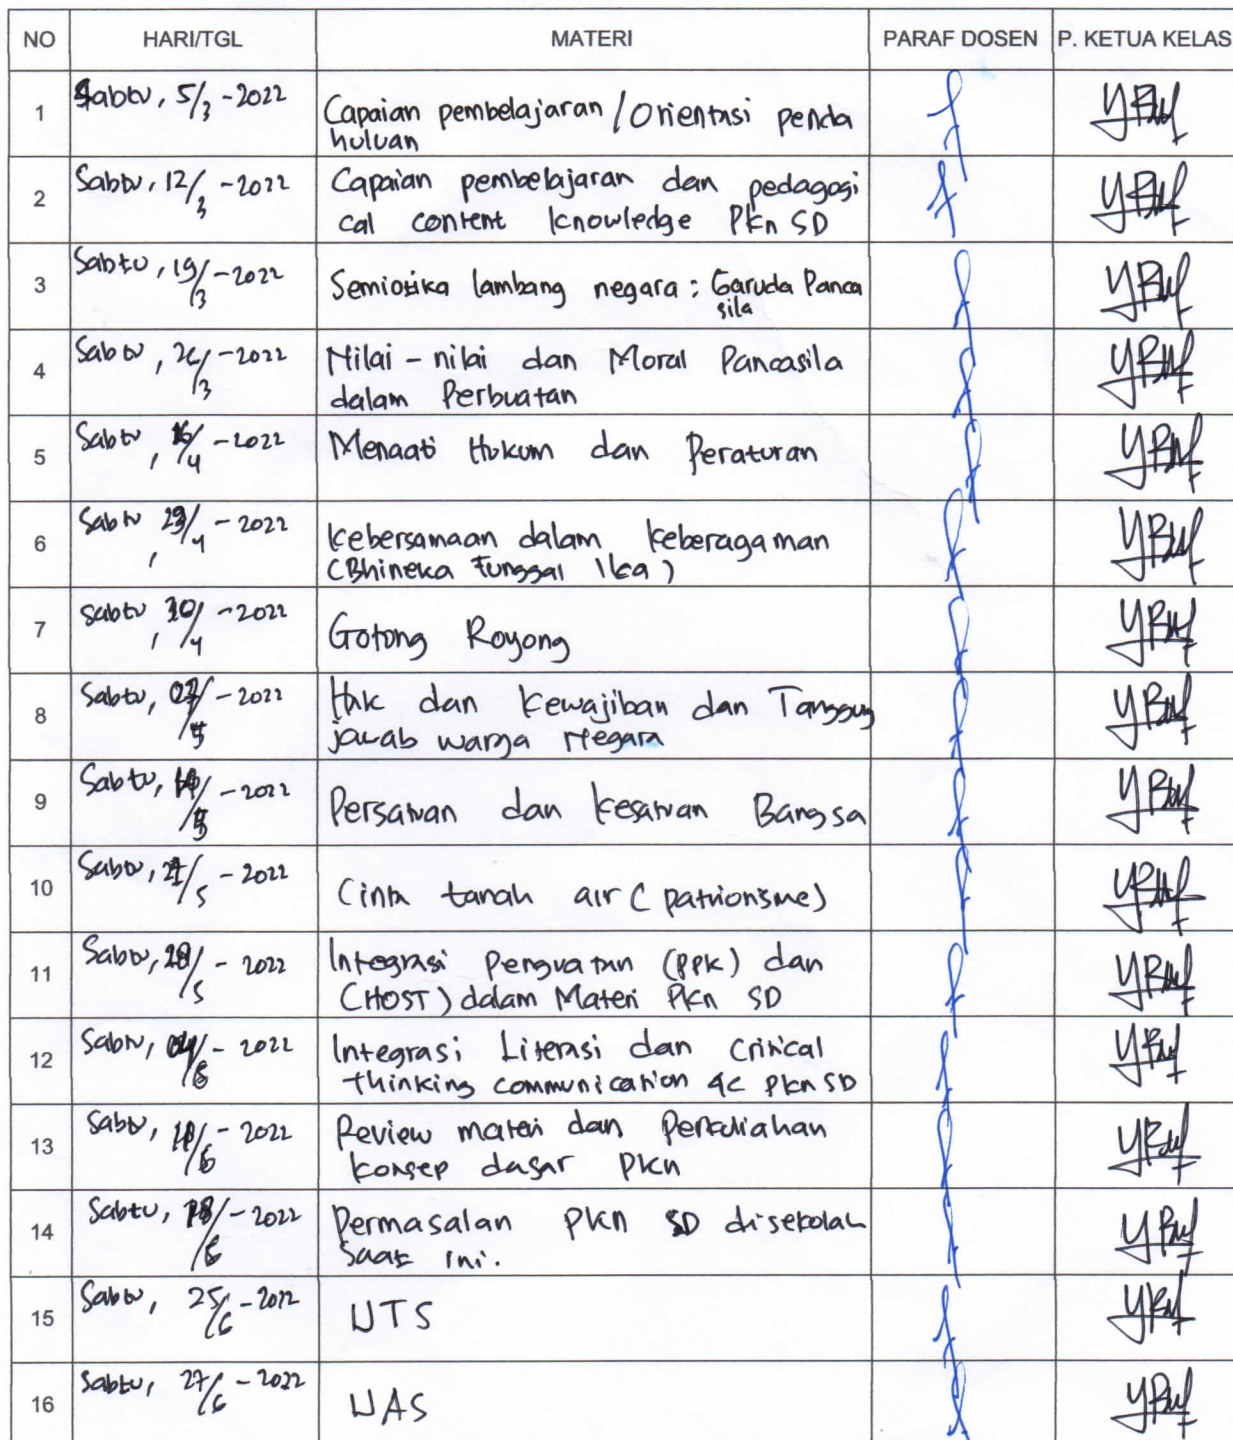 NO HARI/TGL MATERI PARAF DOSEN P. KETUA KELAS
1 Sabtu, 5/3 - 2022 Capaian pembelajaran / Orientasi penda
huluan
2 Sabtu, 12/3 - 2022 Capaian pembelajaran dan pedagogi
cal content knowledge PKn SD
3 Sabtu, 19/3 - 2022 Semiotika lambang negara : Garuda Panca
sila
4 Sabtu, 26/3 - 2022 Nilai - nilai dan Moral Pancasila
dalam Perbuatan
5 Sabtu, 16/4 - 2022 Menaati Hukum dan Peraturan
6 Sabtu, 23/4 - 2022 kebersamaan dalam keberagaman
(Bhineka Tunggal Ika)
7 Sabtu, 30/4 - 2022 Gotong Royong
8 Sabtu, 07/5 - 2022 Hak dan Kewajiban dan Tanggung
jawab warga Negara
9 Sabtu, /5 - 2022 Persatuan dan kesatuan Bangsa
10 Sabtu, 21/5 - 2022 Cinta tanah air (patrionisme)
11 Sabtu, 28/5 - 2022 Integrasi Penguatan (PPK) dan
(HOST) dalam Materi PKn SD
12 Sabtu, 04/6 - 2022 Integrasi Literasi dan Critical
thinking communication 4c pkn SD
13 Sabtu, /6 - 2022 Review materi dan Perkuliahan
konsep dasar PKn
14 Sabtu, 18/6 - 2022 Permasalan PKn SD disekolah
saat ini.
15 Sabtu, 25/6 - 2022 UTS
16 Sabtu, 27/6 - 2022 UAS